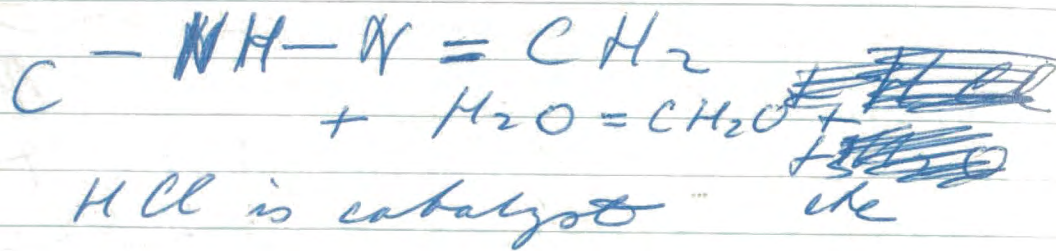 C - NH - N = CH2
+ H2O = CH2O +
HCl is catalyst etc